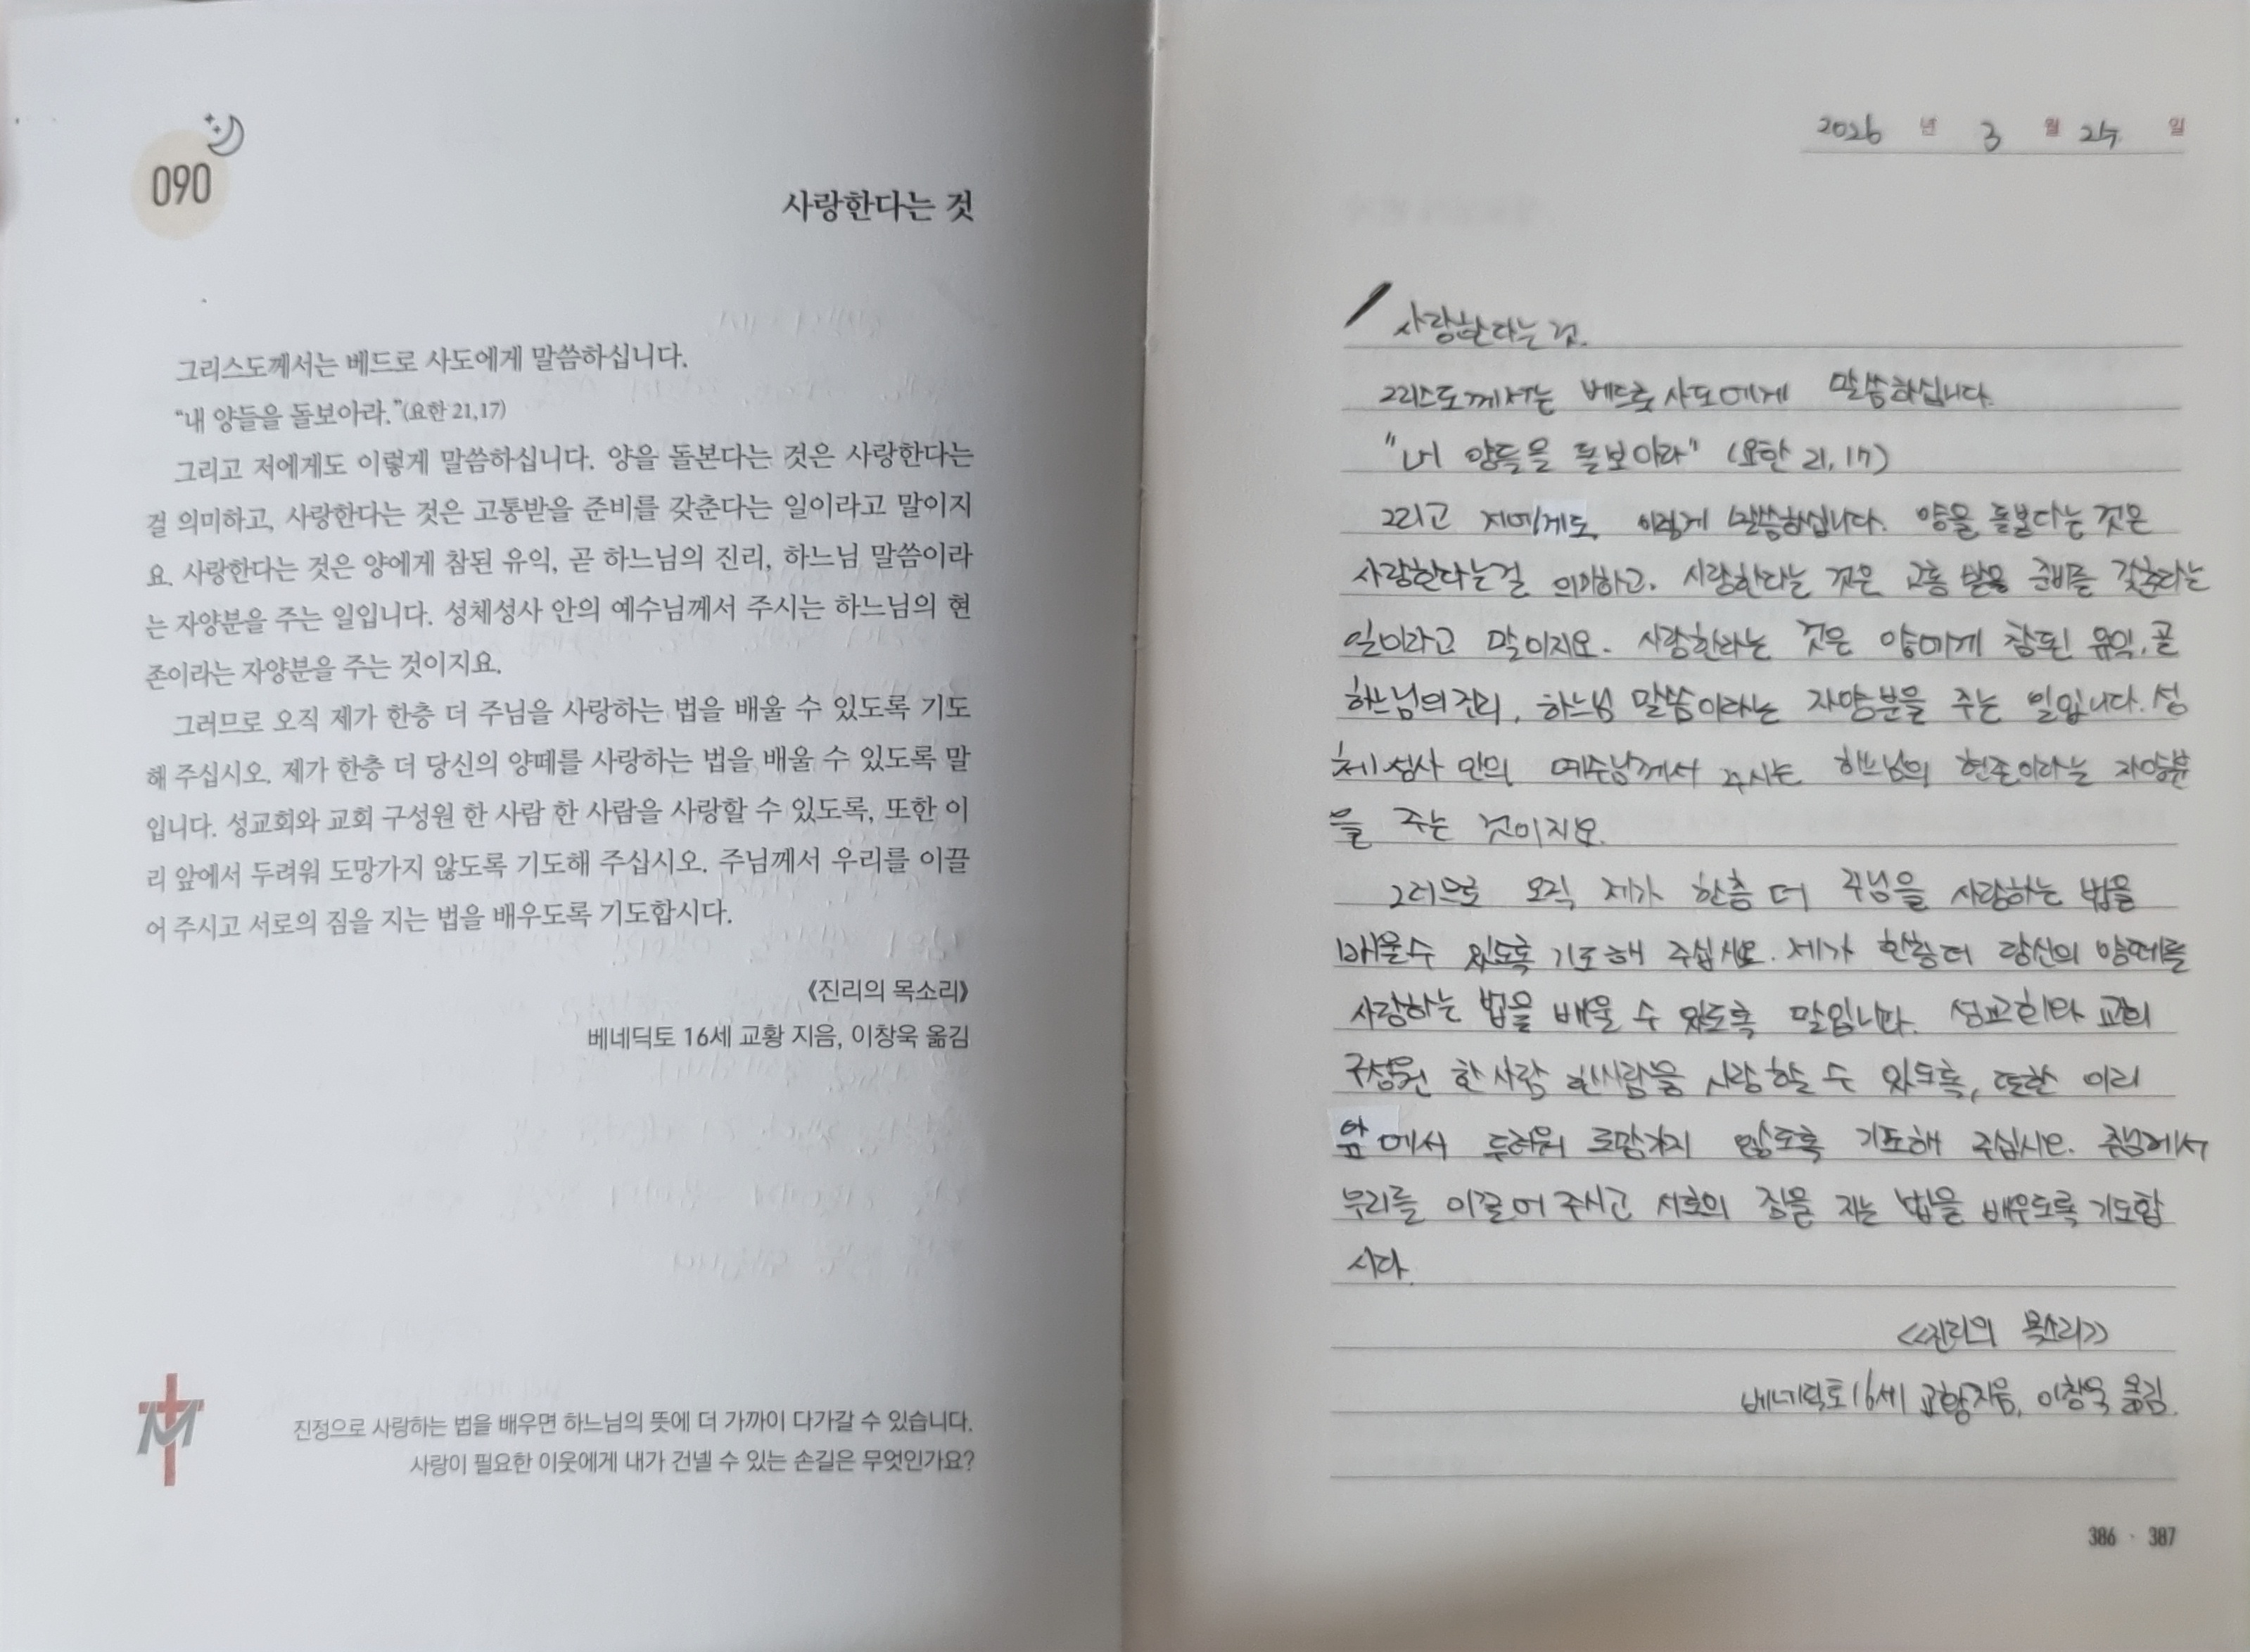 090
사랑한다는 것
그리스도께서는 베드로 사도에게 말씀하십니다.
“내 양들을 돌보아라.”(요한 21,17)
그리고 저에게도 이렇게 말씀하십니다. 양을 돌본다는 것은 사랑한다는
걸 의미하고, 사랑한다는 것은 고통받을 준비를 갖춘다는 일이라고 말이지
요. 사랑한다는 것은 양에게 참된 유익, 곧 하느님의 진리, 하느님 말씀이라
는 자양분을 주는 일입니다. 성체성사 안의 예수님께서 주시는 하느님의 현
존이라는 자양분을 주는 것이지요.
그러므로 오직 제가 한층 더 주님을 사랑하는 법을 배울 수 있도록 기도
해 주십시오. 제가 한층 더 당신의 양떼를 사랑하는 법을 배울 수 있도록 말
입니다. 성교회와 교회 구성원 한 사람 한 사람을 사랑할 수 있도록, 또한 이
리 앞에서 두려워 도망가지 않도록 기도해 주십시오. 주님께서 우리를 이끌
어 주시고 서로의 짐을 지는 법을 배우도록 기도합시다.
《진리의 목소리》
베네딕토 16세 교황 지음, 이창욱 옮김
진정으로 사랑하는 법을 배우면 하느님의 뜻에 더 가까이 다가갈 수 있습니다.
사랑이 필요한 이웃에게 내가 건넬 수 있는 손길은 무엇인가요?
2026 년 3 월 24 일
사랑한다는 것.
그리스도께서는 베드로 사도에게 말씀하십니다.
"내 양들을 돌보아라" (요한 21, 17)
그리고 저에게도 이렇게 말씀하십니다. 양을 돌본다는 것은
사랑한다는걸 의미하고. 사랑한다는 것은 고통 받을 준비를 갖춘다는
일이라고 말이지요. 사랑한다는 것은 양에게 참된 유익, 곧
하느님의 진리, 하느님 말씀이라는 자양분을 주는 일입니다. 성
체성사 안의 예수님께서 주시는 하느님의 현존이라는 자양분
을 주는 것이지요.
그러므로 오직 제가 한층 더 주님을 사랑하는 법을
배울수 있도록 기도해 주십시오. 제가 한층 더 당신의 양떼를
사랑하는 법을 배울 수 있도록 말입니다. 성교회와 교회
구성원 한 사람 한사람을 사랑할 수 있도록, 또한 이리
앞에서 두려워 도망가지 않도록 기도해 주십시오. 주님께서
우리를 이끌어 주시고 서로의 짐을 지는 법을 배우도록 기도합
시다.
<<진리의 목소리>>
베네딕토 16세 교황 지음, 이창욱 옮김.
386 · 387